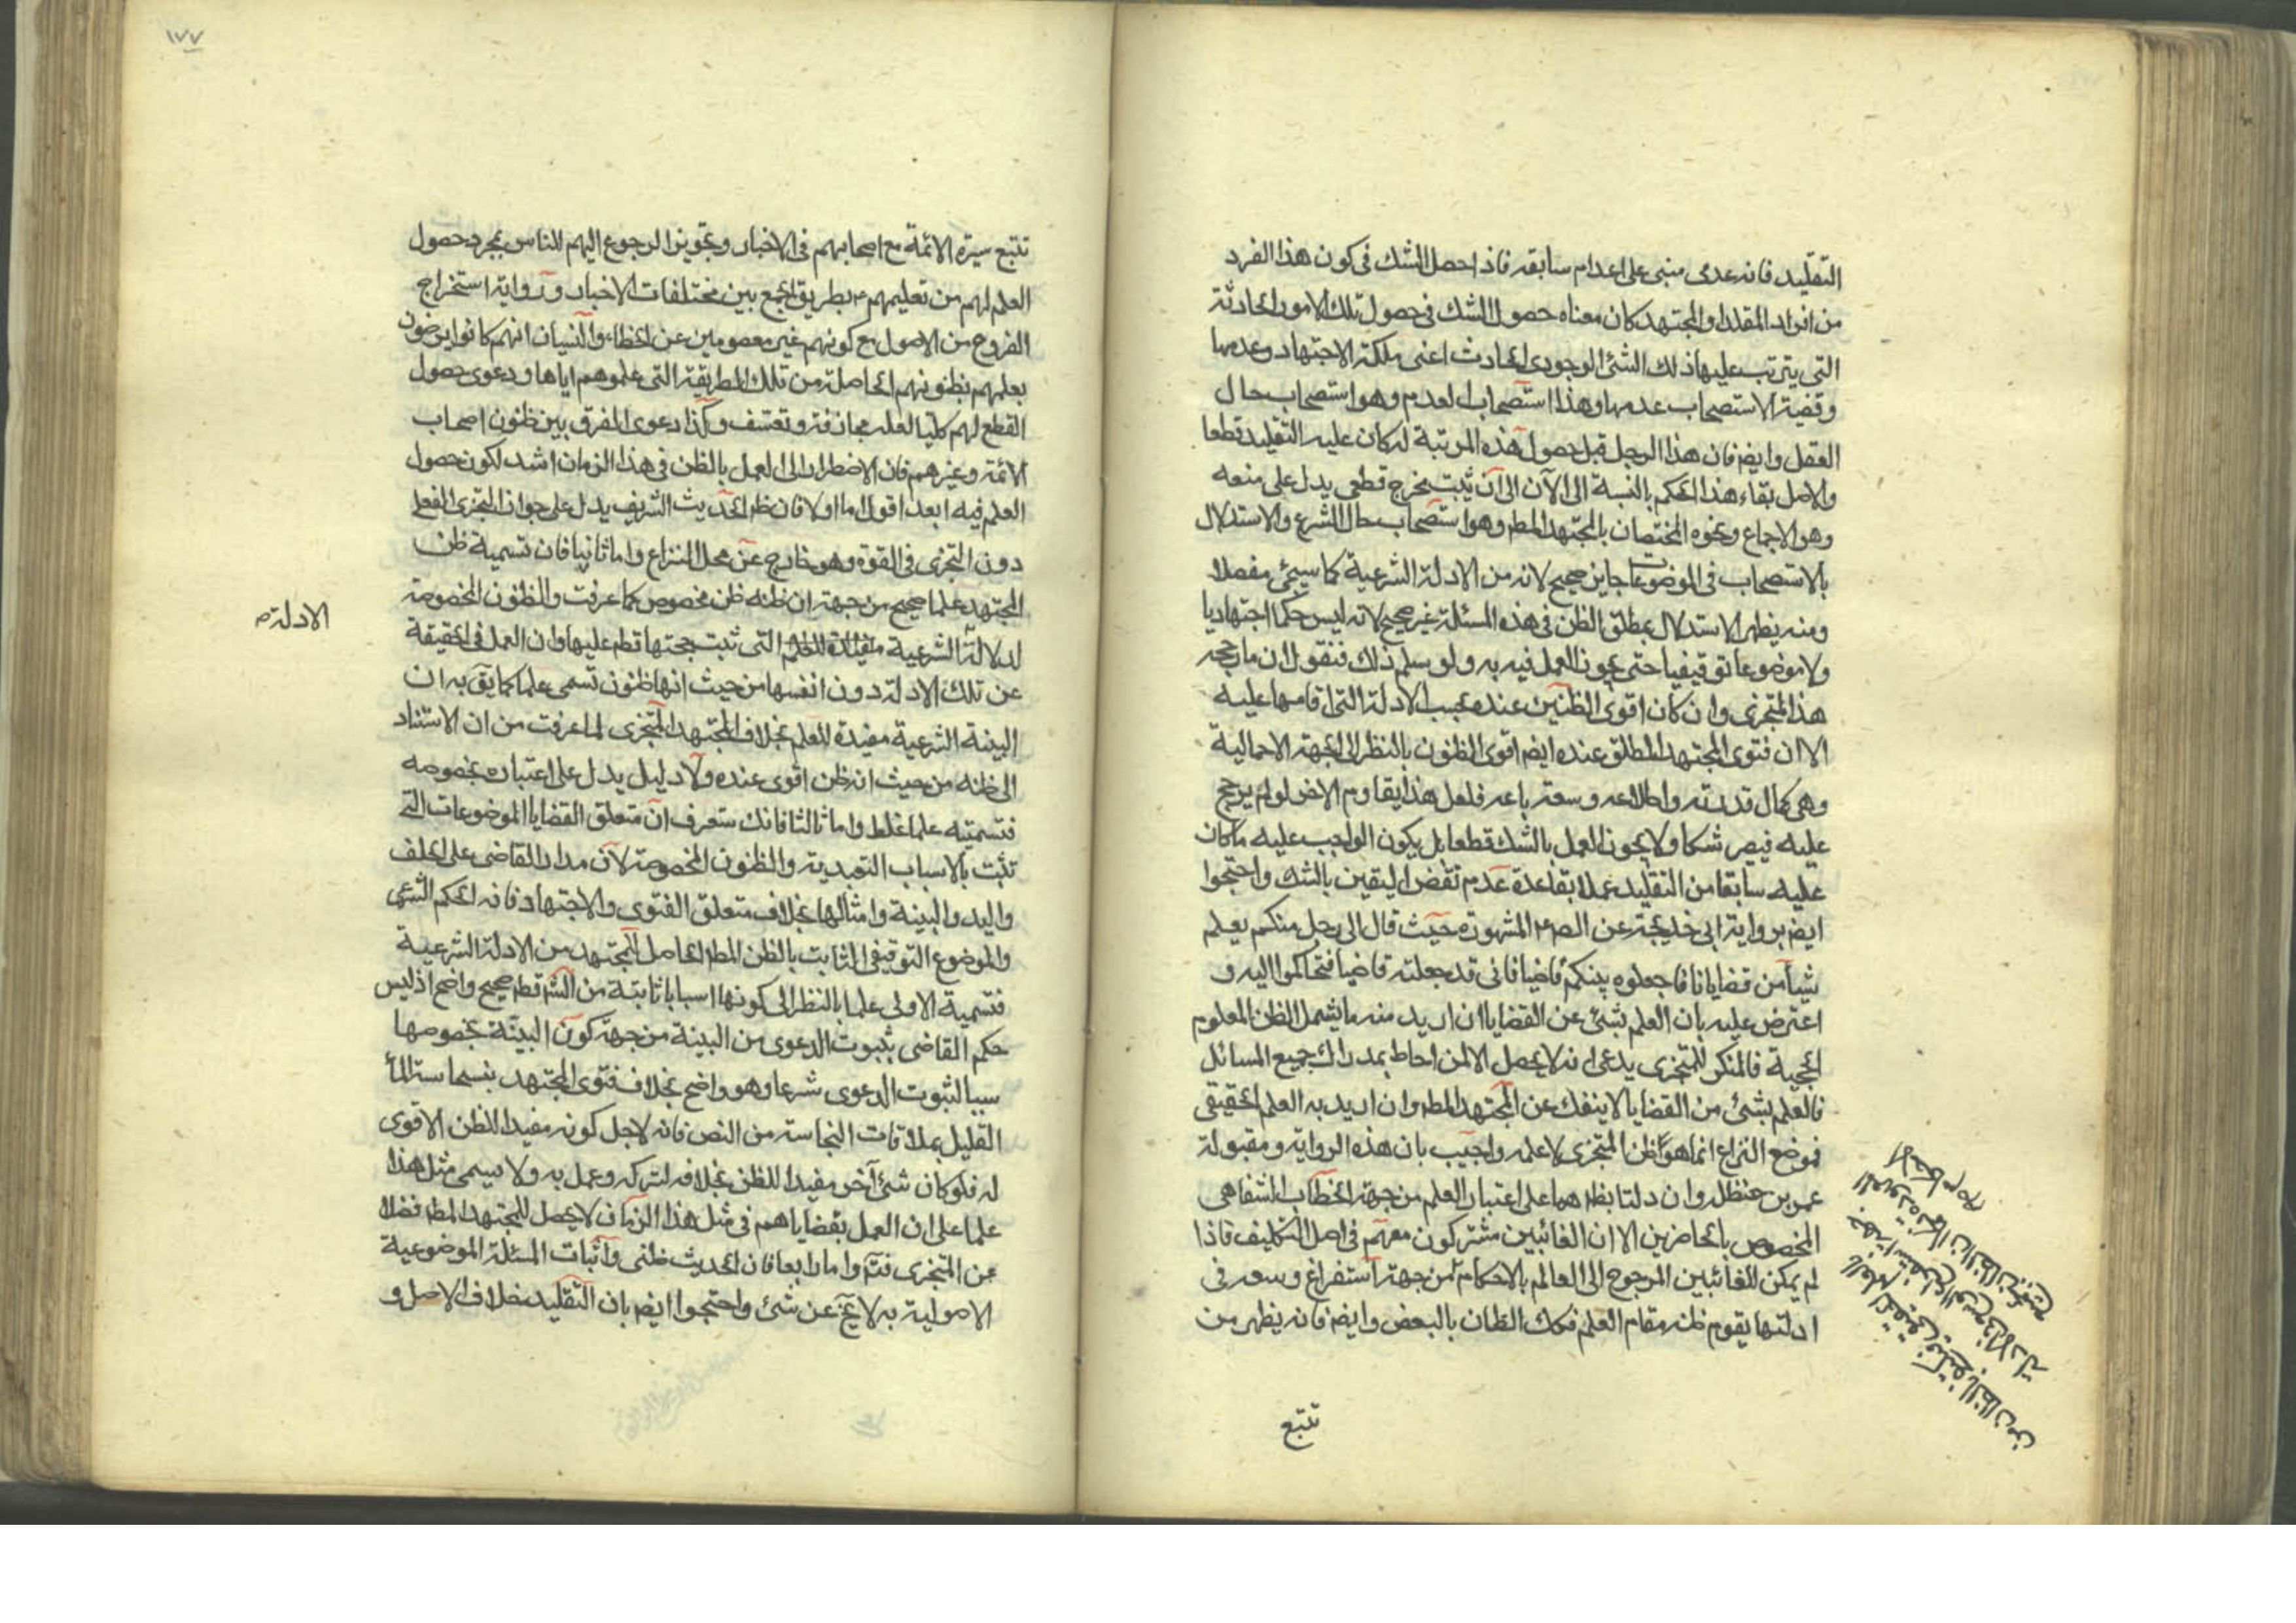 التقليد فانه عدمى مبنى على اعدام سابقه فاذا حصل الشك فى كون هذا الفرد
من افراد المقلد او المجتهد كان معناه حصول الشك فى حصول تلك الامور الحادثة
التى يترتب عليها ذلك الشئ الوجودى الحادث اعنى ملكة الاجتهاد وعدمها
وقضية الاستصحاب عدمها وهذا استصحاب العدم وهو استصحاب حال
العقل وايضا فان هذا الرجل قبل حصول هذه المرتبة له كان عليه التقليد قطعا
والاصل بقاء هذا الحكم بالنسبة الى الآن الى ان يثبت مخرج قطعى يدل على منعه
وهو الاجماع ونحوه المختصان بالمجتهد المط وهو استصحاب حال الشرع والاستدلال
بالاستصحاب فى الموضوعات جايز صحيح لانه من الادلة الشرعية كما سيجئ مفصلا
ومنه يظهر الاستدلال بمطلق الظن فى هذه المسئلة غير صحيح لانه ليس حكما اجتهاديا
ولا موضوعا توقيفيا حتى يجوز العمل فيه به ولو سلم ذلك فنقول ان ما رجحه
هذا المتجزى وان كان اقوى الظنين عنده بحسب الادلة التى اقامها عليه
الا ان فتوى المجتهد المطلق عنده ايضا اقوى الظنون بالنظر الى الجهة الاجمالية
وهى كمال قدرته واطلاعه وسعة باعه فلعل هذا يقاوم الاخر لو لم يرجح
عليه فيصير شكا ولا يجوز العمل بالشك قطعا بل يكون الواجب عليه ما كان
عليه سابقا من التقليد عملا بقاعدة عدم نقض اليقين بالشك واحتجوا
ايضا برواية ابى خديجة عن الص ع المشهورة حيث قال الى رجل منكم يعلم
شيأ من قضايانا فاجعلوه بينكم قاضيا فانى قد جعلته قاضيا فتحاكموا اليه و
اعترض عليه بان العلم بشئ عن القضايا ان اريد منه ما يشمل الظن المعلوم
الحجية فالمنكر للتجزى يدعى انه لا يحصل الا لمن احاط بمدارك جميع المسائل
فالعلم بشئ من القضايا لا ينفك عن المجتهد المط وان اريد به العلم الحقيقى
فموضع النزاع انما هو ظن المتجزى لا علمه واجيب بان هذه الرواية ومقبولة
عمر بن حنظلة وان دلتا بظاهرهما على اعتبار العلم من جهة الخطاب الشفاهى
المخصوص بالحاضرين الا ان الغائبين مشتركون معهم فى اصل التكليف فاذا
لم يمكن للغائبين الرجوع الى العالم بالاحكام من جهة استفراغ وسعه فى
ادلتها يقوم ظنه مقام العلم فكك الظان بالبعض وايضا فانه يظهر من
تتبع
١٧٧
تتبع سيرة الائمة مع اصحابهم فى الاخبار وتجويز الرجوع اليهم للناس بمجرد حصول
العلم لهم من تعليمهم ع بطريق الجمع بين مختلفات الاخبار ورواية استخراج
الفروع من الاصول مع كونهم غير معصومين عن الخطاء والنسيان انهم كانوا يرضون
بعلمهم بظنونهم الحاصلة من تلك الطريقة التى علموهم اياها ودعوى حصول
القطع لهم كليا لعله مجازفة وتعسف وكذا دعوى الفرق بين ظنون اصحاب
الائمة وغيرهم فان الاضطرار الى العمل بالظن فى هذا الزمان اشد لكون حصول
العلم فيه ابعد اقول اما اولا فان ظ الحديث الشريف يدل على جواز التجزى الفعلى
دون التجزى فى القوة وهو خارج عن محل النزاع واما ثانيا فان تسمية ظن
المجتهد علما صحيح من جهة ان ظنه ظن مخصوص كما عرفت والظنون المخصوصة
لدلالة الشرعية التى ثبت حجتها قطع عليها وان العمل فى الحقيقة
الادلة ص
عن تلك الادلة دون انفسها من حيث انها ظنون تسمى علما كما يق به ان
البينة الشرعية مفيدة للعلم بخلاف المجتهد المتجزى لما عرفت من ان الاستناد
الى ظنه من حيث انه ظن اقوى عنده ولا دليل يدل على اعتباره بخصوصه
فتسميته علما غلط واما ثالثا فانك ستعرف ان متعلق القضايا الموضوعات التى
تثبت بالاسباب التعبدية والظنون المخصوصة لان مدار القاضى على الحلف
واليد والبينة وامثالها بخلاف متعلق الفتوى والاجتهاد فانه الحكم الشرعى
والموضوع التوقيفى الثابت بالظن المط الحاصل للمجتهد من الادلة الشرعية
فتسمية الاولى علما بالنظر الى كونها اسبابا ثابتة من الشرع قطع صحيح واضح اذ ليس
حكم القاضى بثبوت الدعوى من البينة من جهة كون البينة بخصوصها
سببا لثبوت الدعوى شرعا وهو واضح بخلاف فتوى المجتهد بنجاسة الماء
القليل بملاقات النجاسة من النص فانه لاجل كونه مفيدا للظن الاقوى
له فلو كان شئ آخر مفيدا للظن بخلافه لتركه وعمل به ولا يسمى مثل هذا
علما على ان العمل بقضاياهم فى مثل هذا الزمان لا يحصل للمجتهد المط فضلا
عن المتجزى فتم واما رابعا فان الحديث ظنى واثبات المسئلة الموضوعية
الاصولية به لا يخ عن شئ واحتجوا ايضا بان التقليد خلاف الاصل و